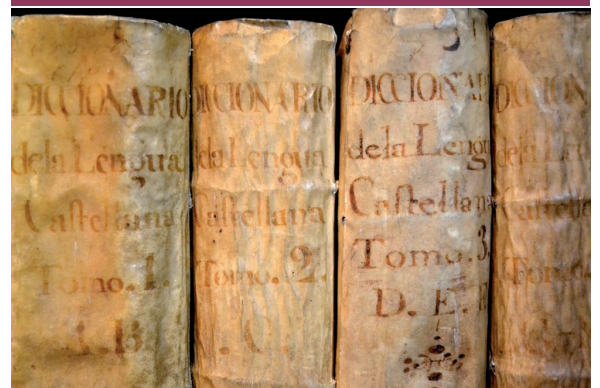 DICCIONARIO
de la Lengua
Castellana
Tomo. 1.
A. B.
DICCIONARIO
de la Lengua
Castellana
Tomo. 2.
. C.
DICCIONA
de la Leng
Castellana
Tomo. 3.
D. E.
DICCION
de la Len
Castella
Tomo